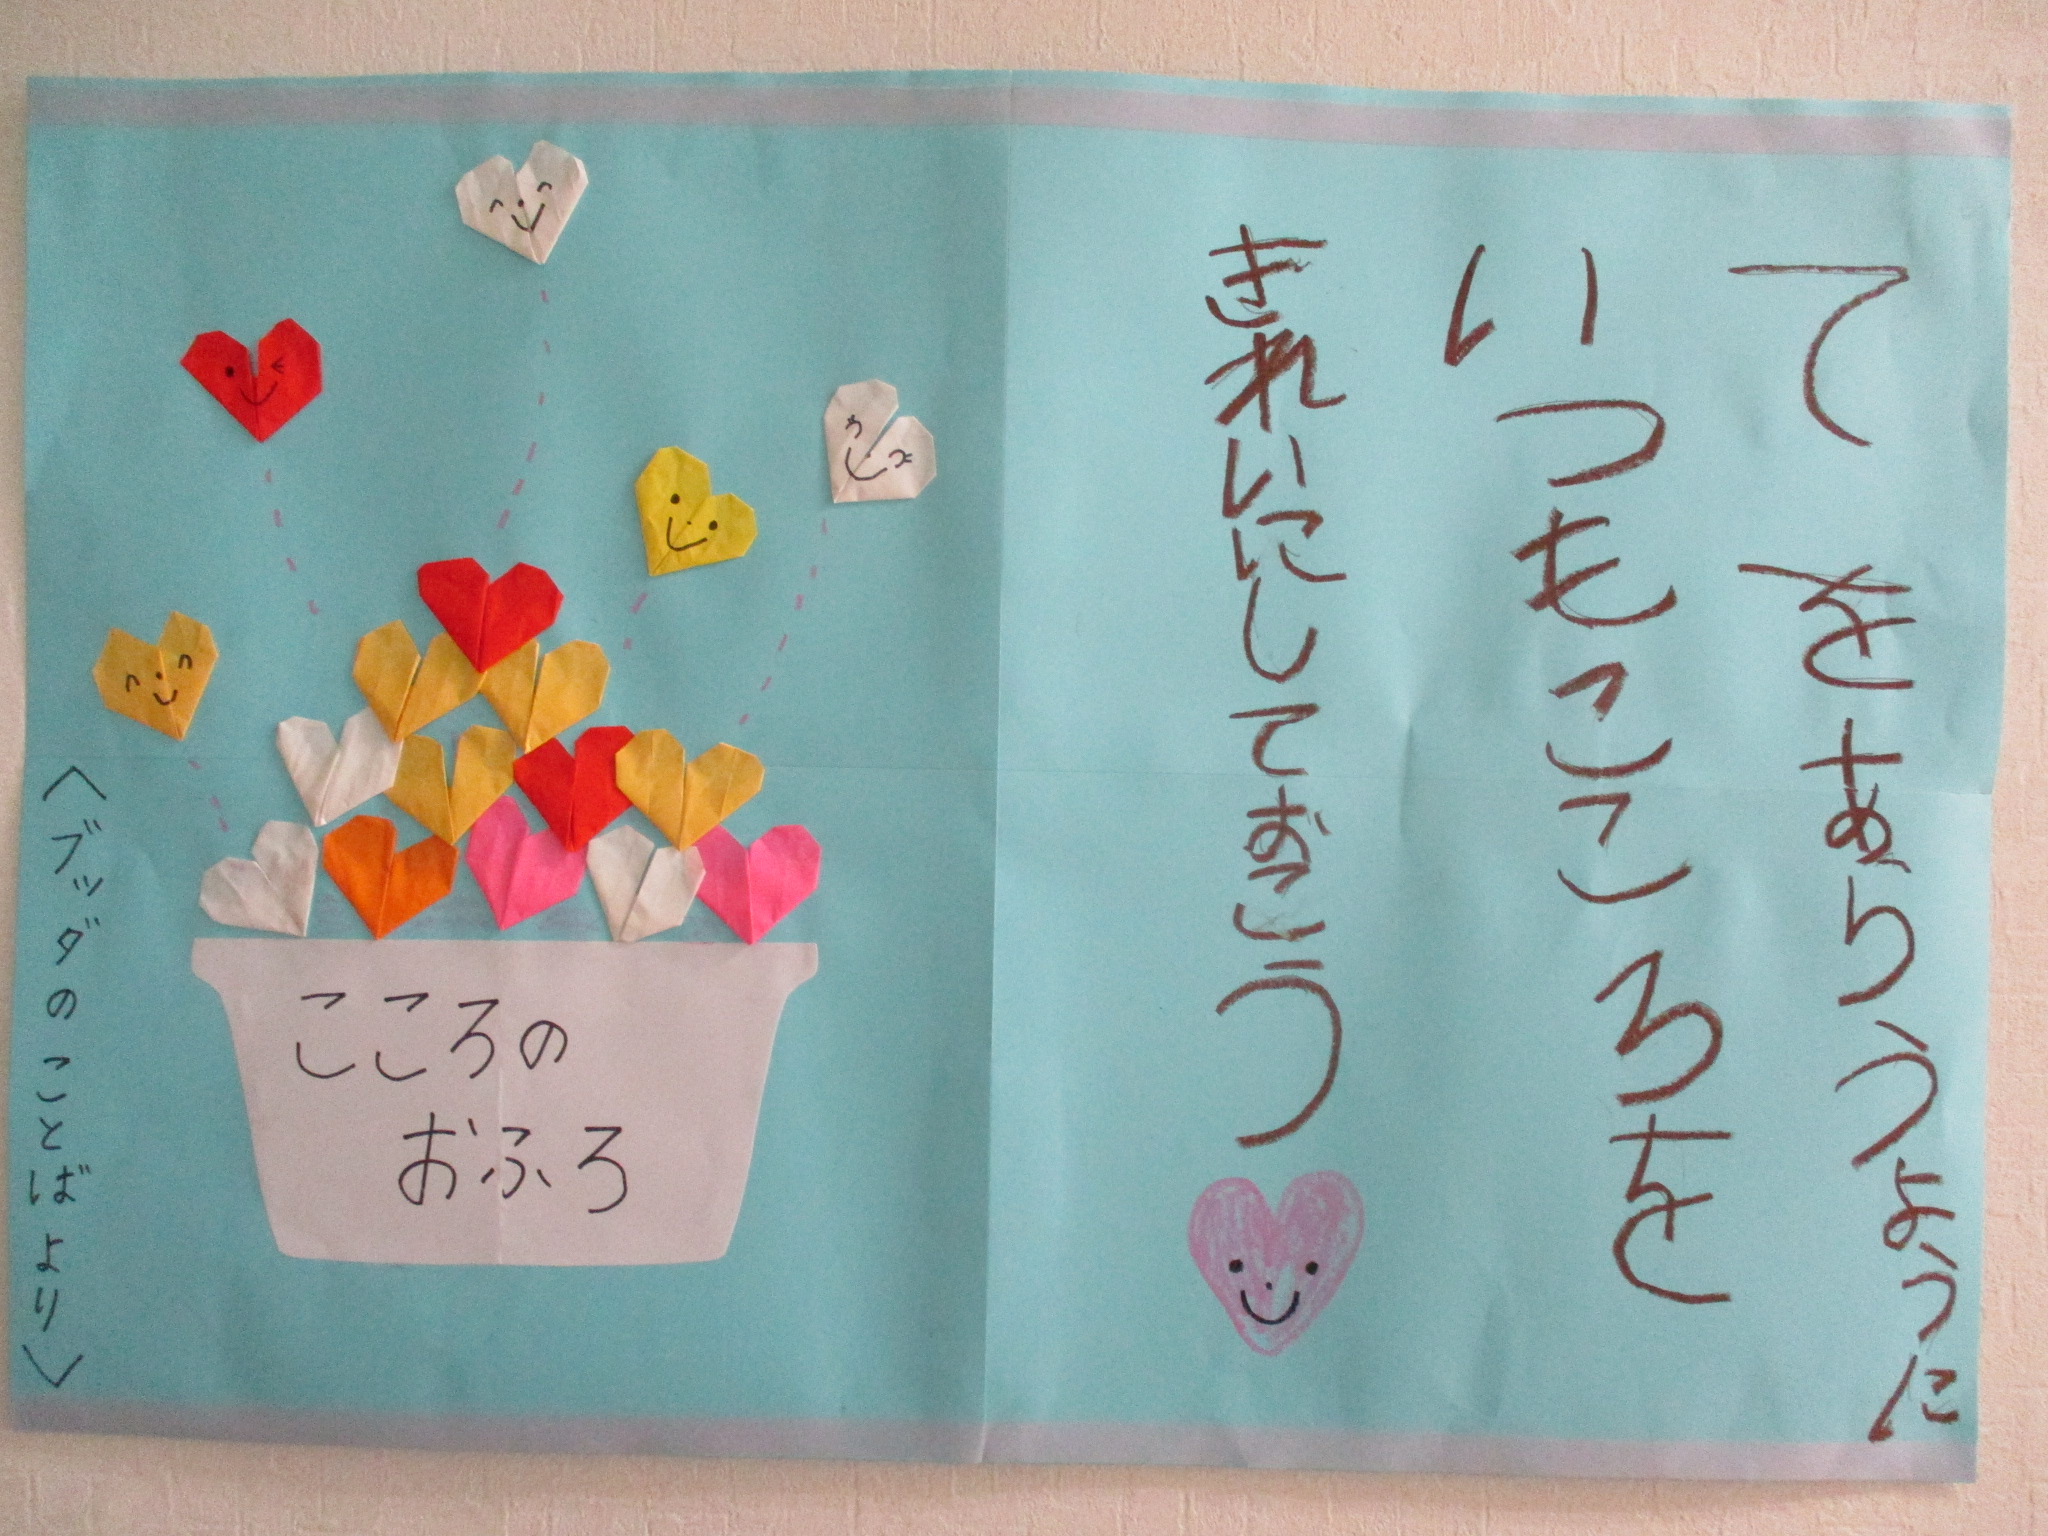 てをあらうように
いつもこころを
きれいにしておこう
こころの
おふろ
〈ブッダのことばより〉